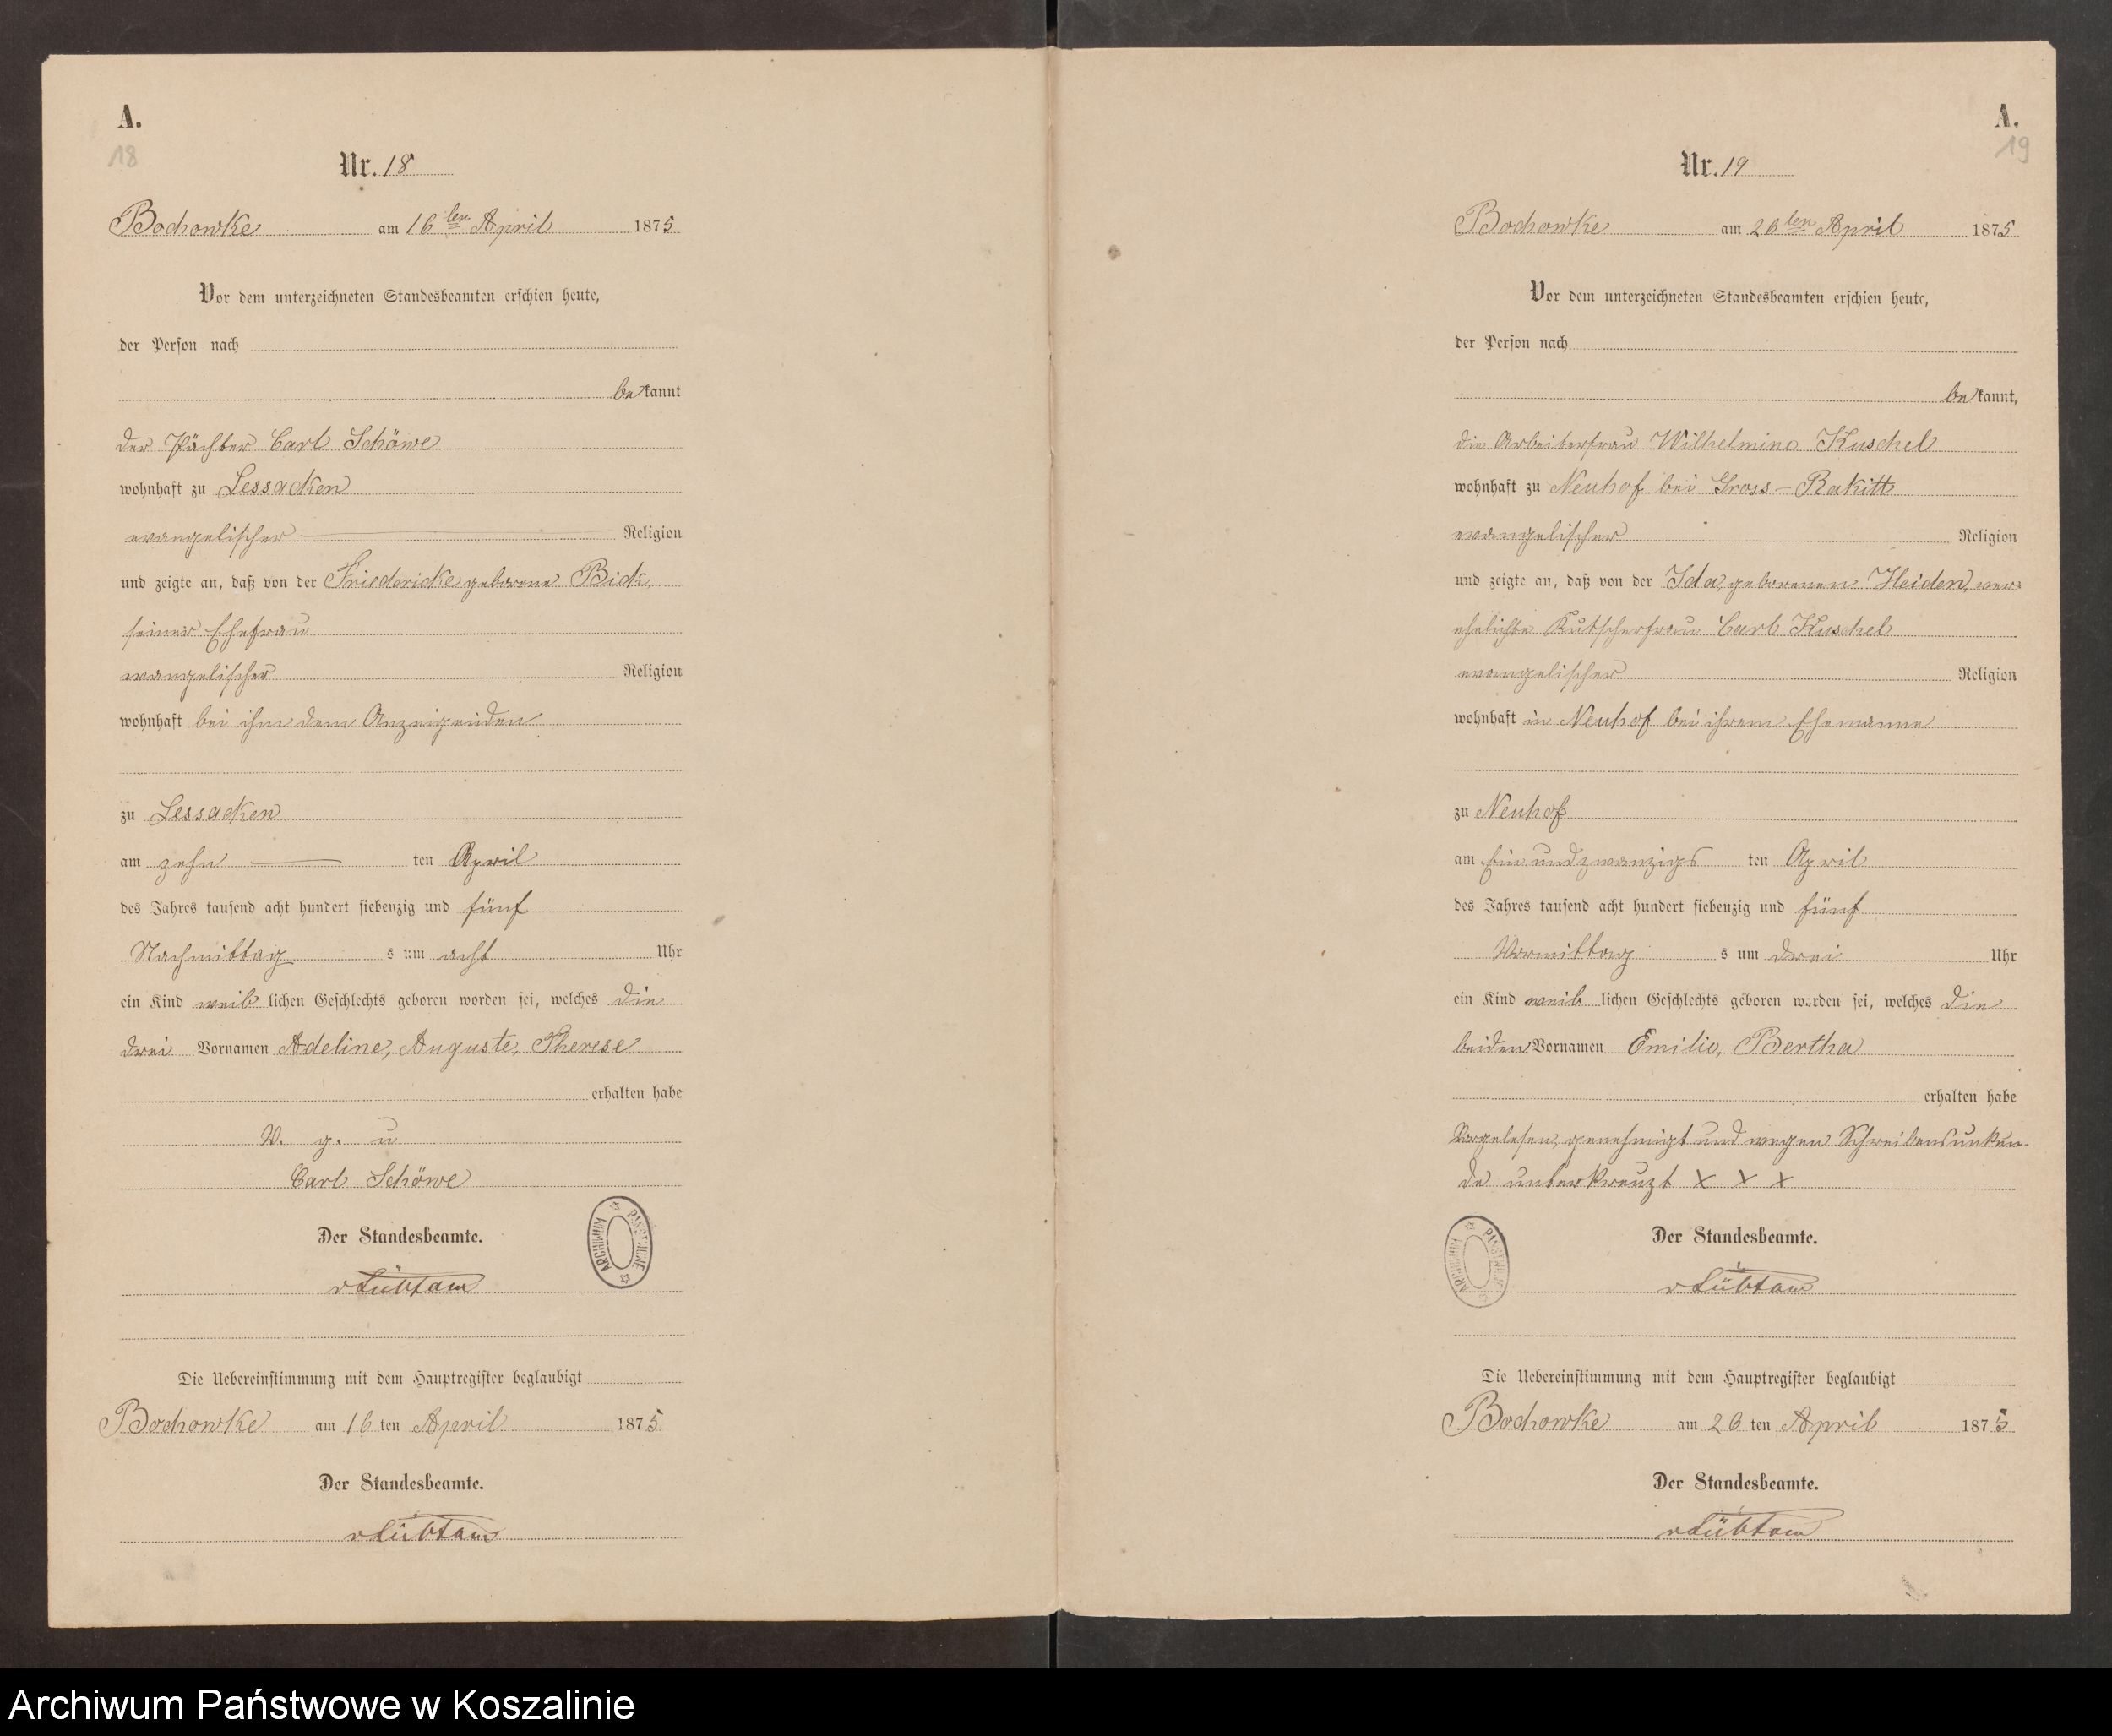 A.
18
Nr. 18
Bochowke am 16ten April 1875
Vor dem unterzeichneten Standesbeamten erschien heute,
der Person nach
bekannt
der Pächter Carl Schöwe
wohnhaft zu Lessacken
evangelischer Religion
und zeigte an, daß von der Friedericke geborene Bick,
seiner Ehefrau
evangelischer Religion
wohnhaft bei ihm dem Anzeigenden
zu Lessacken
am zehn ten April
des Jahres tausend acht hundert siebenzig und fünf
Nachmittag s um acht Uhr
ein Kind weib lichen Geschlechts geboren worden sei, welches die
drei Vornamen Adeline, Auguste, Therese
erhalten habe
V. g. u
Carl Schöwe
Der Standesbeamte.
v Lübtow
ARCHIWUM PAŃSTWOWE
Die Uebereinstimmung mit dem Hauptregister beglaubigt
Bochowke am 16 ten April 1875
Der Standesbeamte.
v Lübtow
A.
19
Nr. 19
Bochowke am 26ten April 1875
Vor dem unterzeichneten Standesbeamten erschien heute,
der Person nach
bekannt,
die Arbeiterfrau Wilhelmine Kuschel
wohnhaft zu Neuhof bei Gross-Rakitt
evangelischer Religion
und zeigte an, daß von der Ida, geborenen Heiden, ver-
ehelichte Kutscherfrau Carl Kuschel
evangelischer Religion
wohnhaft in Neuhof bei ihrem Ehemanne
zu Neuhof
am Ein und zwanzigs ten April
des Jahres tausend acht hundert siebenzig und fünf
Vormittag s um drei Uhr
ein Kind weib lichen Geschlechts geboren worden sei, welches die
beiden Vornamen Emilie, Bertha
erhalten habe
Vorgelesen, genehmigt und wegen Schreibensunkun-
de unterkreuzt X X X
Der Standesbeamte.
v Lübtow
ARCHIWUM PAŃSTWOWE
Die Uebereinstimmung mit dem Hauptregister beglaubigt
Bochowke am 26 ten April 1875
Der Standesbeamte.
v Lübtow
Archiwum Państwowe w Koszalinie